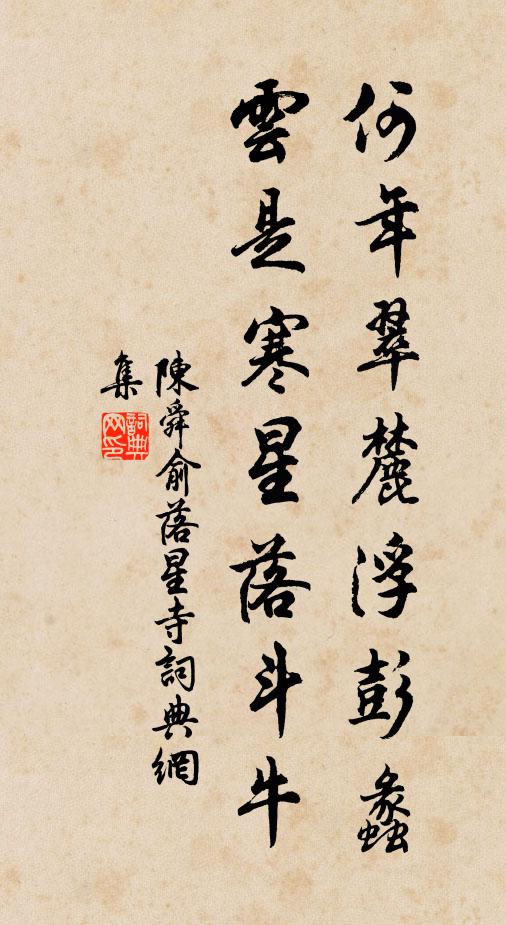 何年翠麓浮彭蠡
雲是寒星落斗牛
陳舜俞落星寺詞典網
集
詞典網印